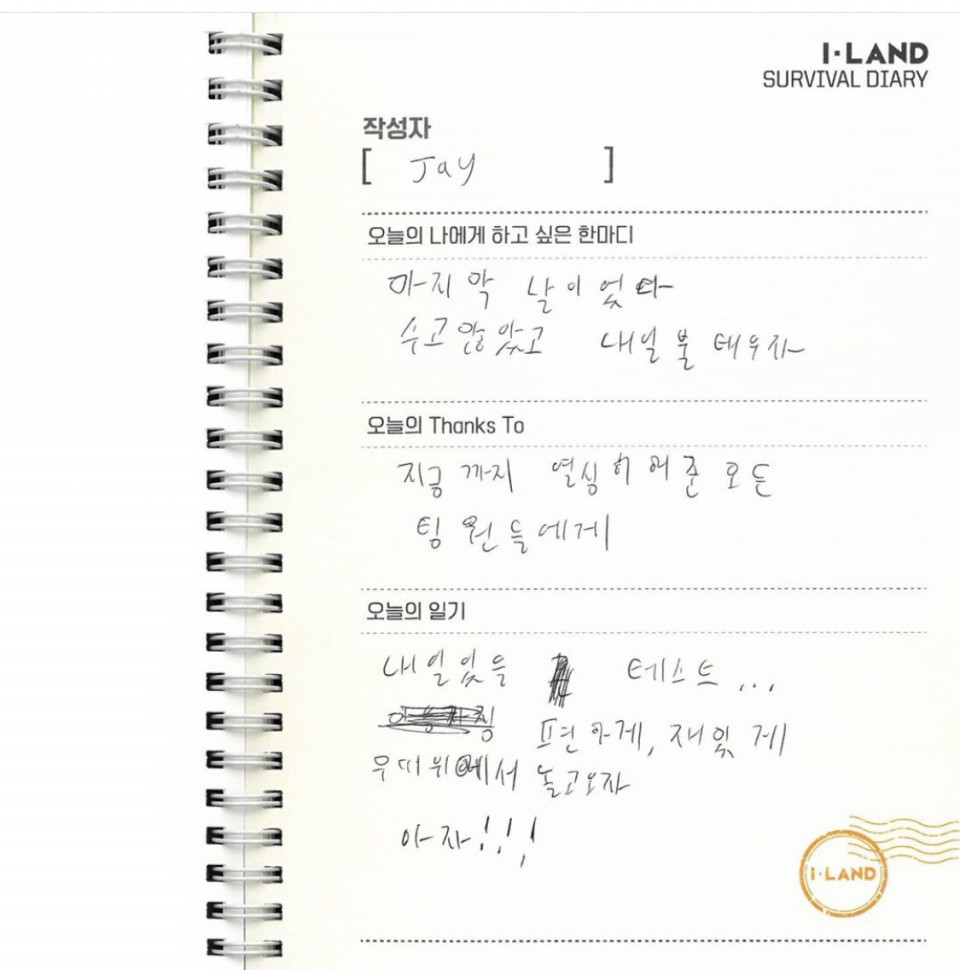 I·LAND
SURVIVAL DIARY
작성자
[ Jay ]
오늘의 나에게 하고 싶은 한마디
마지막 날이었다
수고 많았고 내일 불태우자
오늘의 Thanks To
지금까지 열심히 해준 모든
팀원들에게
오늘의 일기
내일있을 테스트...
편하게, 재밌게
무대위에서 놀고오자
아자!!!
I·LAND